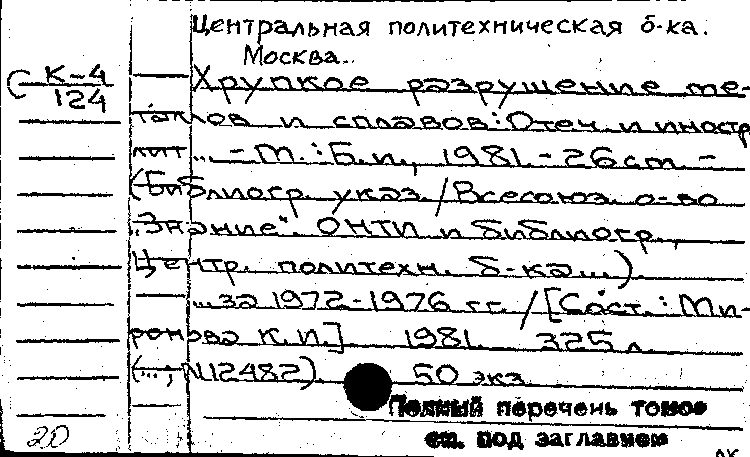 Центральная политехническая б-ка.
Москва..
К-4
124
Хрупкое разрушение ме-
таллов и сплавов: Отеч. и иностр.
лит... - М.: Б.и., 1981. - 26 см. -
(Библиогр. указ. / Всесоюз. о-во
"Знание". ОНТИ и библиогр.,
Центр. политехн. б-ка...)
...за 1972-1976 гг. / [Сост.: Ми-
ронова К.И.]. 1981. 325 л.
(...; N12482). 50 экз.
Полный перечень томов
см. под заглавием
20